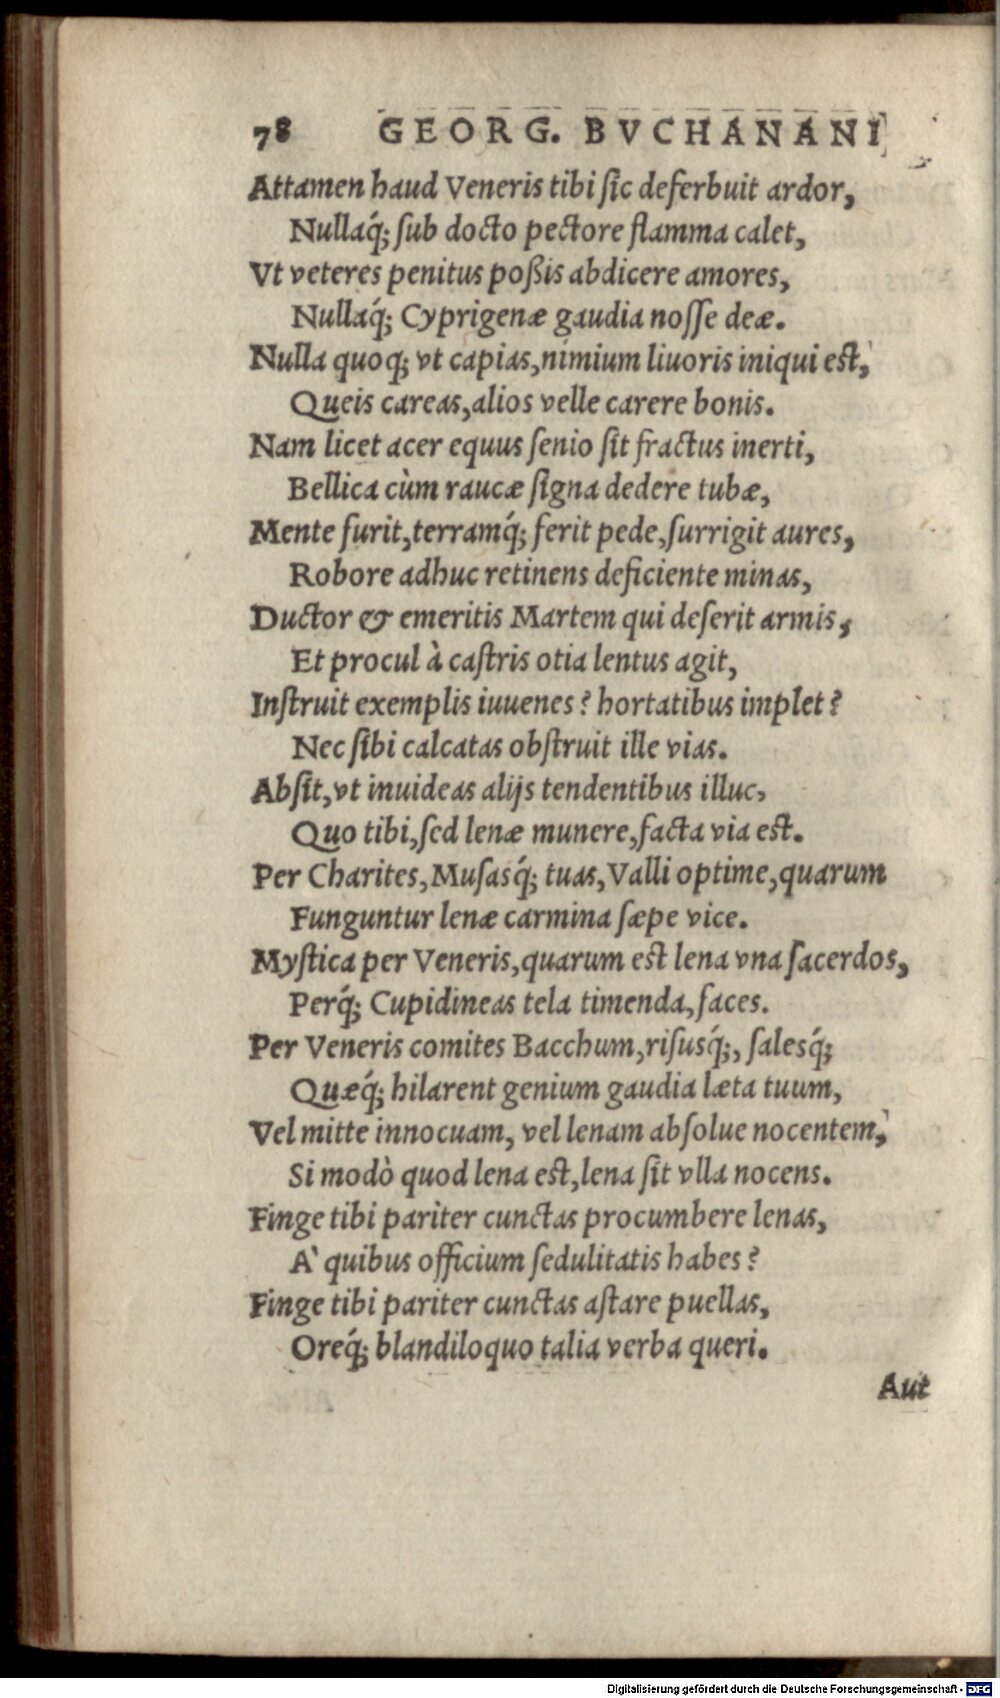 78 GEORG. BVCHANANI
Attamen haud Veneris tibi ſic deferbuit ardor,
Nullaq́; ſub docto pectore flamma calet,
Vt veteres penitus poßis abdicere amores,
Nullaq́; Cyprigenæ gaudia noſſe deæ.
Nulla quoq; vt capias, nimium liuoris iniqui est,
Queis careas, alios velle carere bonis.
Nam licet acer equus ſenio ſit fractus inerti,
Bellica cùm raucæ ſigna dedere tubæ,
Mente furit, terramq́; ferit pede, ſurrigit aures,
Robore adhuc retinens deficiente minas,
Ductor & emeritis Martem qui deſerit armis,
Et procul à caſtris otia lentus agit,
Inſtruit exemplis iuuenes? hortatibus implet?
Nec ſibi calcatas obſtruit ille vias.
Abſit, vt inuideas alijs tendentibus illuc,
Quo tibi, ſed lenæ munere, facta via est.
Per Charites, Muſasq́; tuas, Valli optime, quarum
Funguntur lenæ carmina ſæpe vice.
Myſtica per Veneris, quarum est lena vna ſacerdos,
Perq́; Cupidineas tela timenda, faces.
Per Veneris comites Bacchum, riſusq́;, ſalesq́;
Quæq́; hilarent genium gaudia læta tuum,
Vel mitte innocuam, vel lenam abſolue nocentem,
Si modò quod lena est, lena ſit vlla nocens.
Finge tibi pariter cunctas procumbere lenas,
A` quibus officium ſedulitatis habes?
Finge tibi pariter cunctas aſtare puellas,
Oreq́; blandiloquo talia verba queri.
Aut
Digitalisierung gefördert durch die Deutsche Forschungsgemeinschaft - DFG